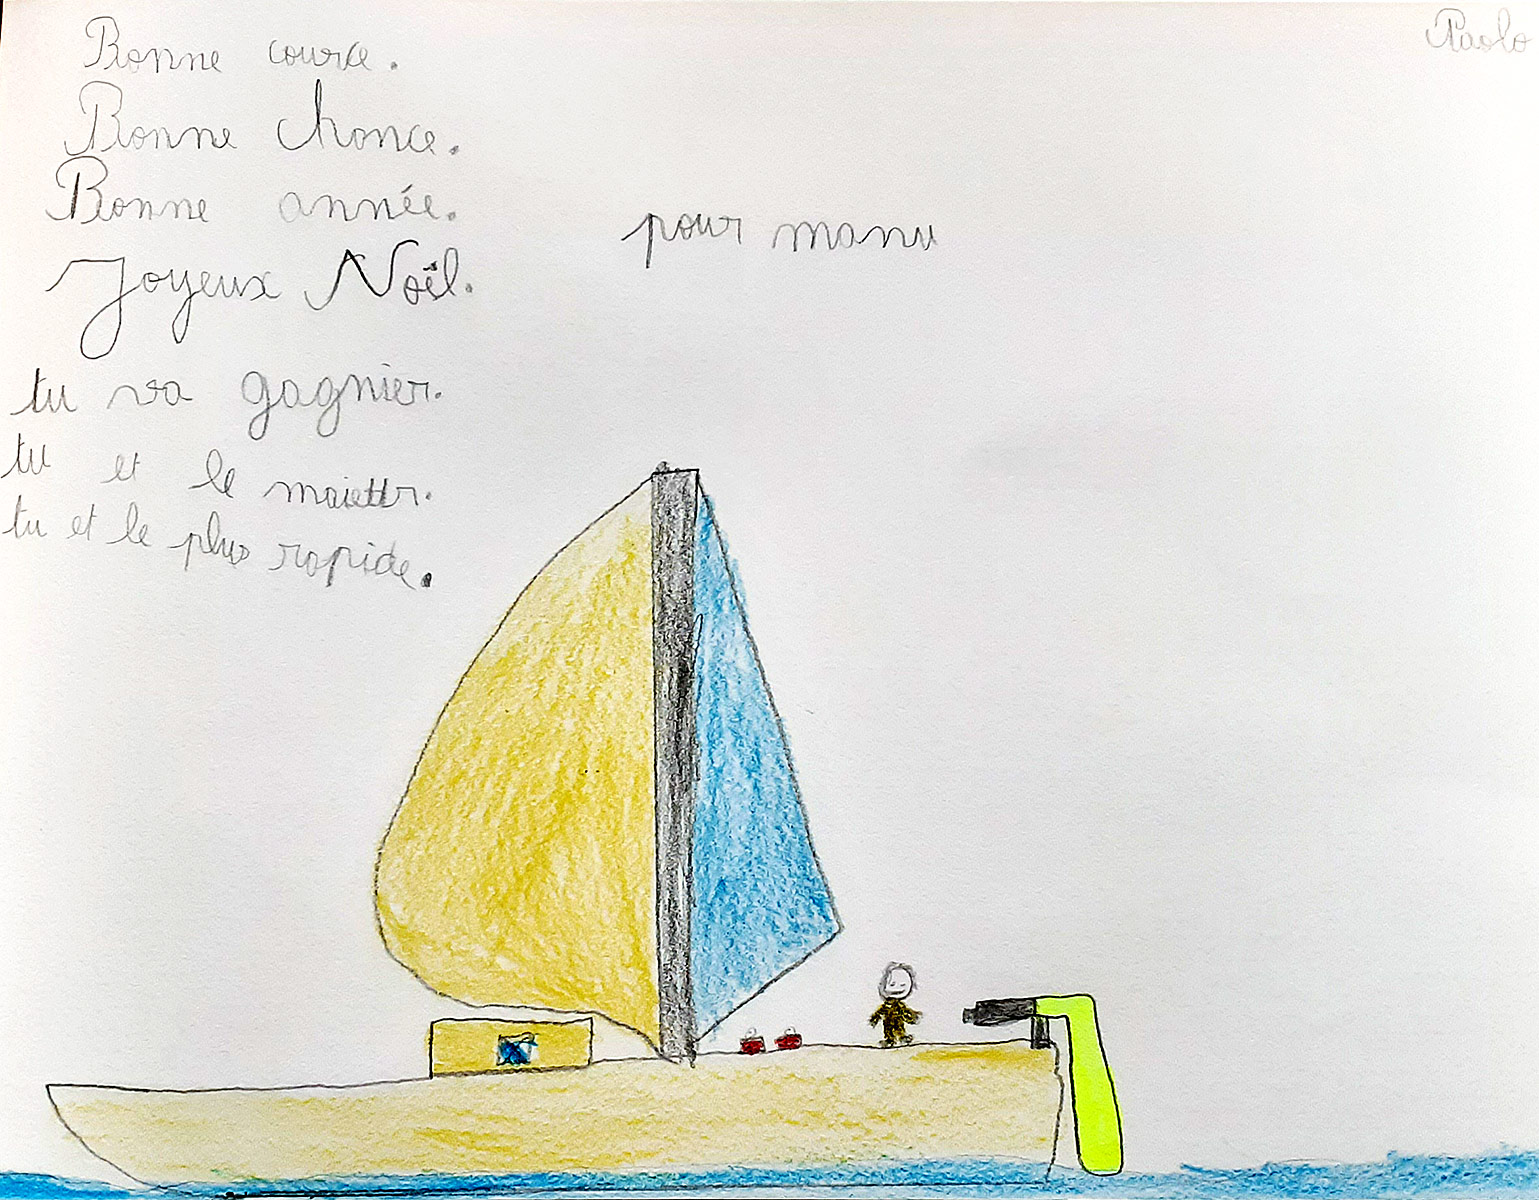 Paolo
Bonne course.
Bonne chance.
Bonne année.
Joyeux Noël.
pour manu
tu va gagnier.
tu et le maiettr.
tu et le plus rapide.